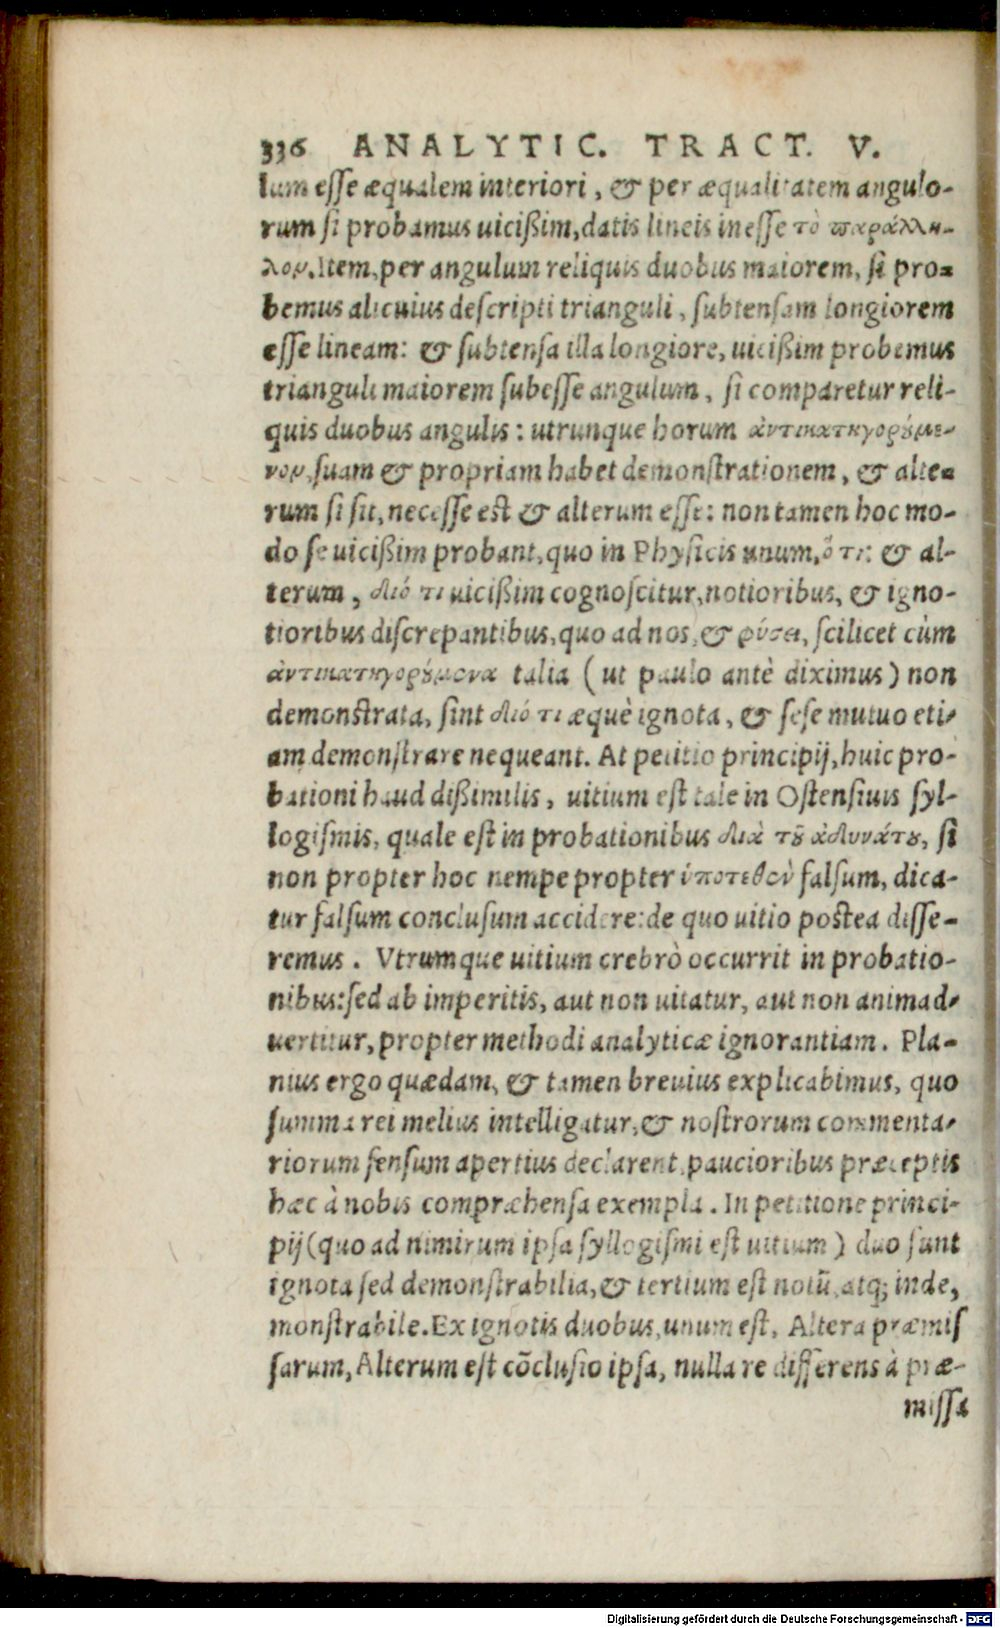 336 ANALYTIC. TRACT. V.
lum esse æqualem interiori, & per æqualitatem angulo-
rum si probamus uicißim, datis lineis inesse τὸ παράλλη-
λον. Item, per angulum reliquis duobus maiorem, si pro-
bemus alicuius descripti trianguli, subtensam longiorem
esse lineam: & subtensa illa longiore, uicißim probemus
trianguli maiorem subesse angulum, si comparetur reli-
quis duobus angulis: utrunque horum ἀντικατηγορούμε-
νον, suam & propriam habet demonstrationem, & alte-
rum si sit, necesse est & alterum esse: non tamen hoc mo-
do se uicißim probant, quo in Physicis unum, ὅτι: & al-
terum, διότι uicißim cognoscitur, notioribus, & igno-
tioribus discrepantibus, quo ad nos, & φύσει, scilicet cùm
ἀντικατηγορούμενα talia (ut paulo antè diximus) non
demonstrata, sint διότι æquè ignota, & sese mutuo eti-
am demonstrare nequeant. At petitio principij, huic pro-
bationi haud dißimilis, uitium est tale in Ostensiuis syl-
logismis, quale est in probationibus διὰ τοῦ ἀδυνάτου, si
non propter hoc nempe propter ὑποτεθὲν falsum, dica-
tur falsum conclusum accidere: de quo uitio postea disse-
remus. Vtrumque uitium crebrò occurrit in probatio-
nibus: sed ab imperitis, aut non uitatur, aut non animad-
uertitur, propter methodi analyticæ ignorantiam. Pla-
nius ergo quædam, & tamen breuius explicabimus, quo
summa rei melius intelligatur, & nostrorum commenta-
riorum sensum apertius declarent, paucioribus præceptis
hæc à nobis compræhensa exempla. In petitione princi-
pij (quo ad nimirum ipsa syllogismi est uitium) duo sunt
ignota sed demonstrabilia, & tertium est notū, atq; inde,
monstrabile. Ex ignotis duobus, unum est, Altera præmis
sarum, Alterum est cōclusio ipsa, nulla re differens à præ-
missa
Digitalisierung gefördert durch die Deutsche Forschungsgemeinschaft - DFG